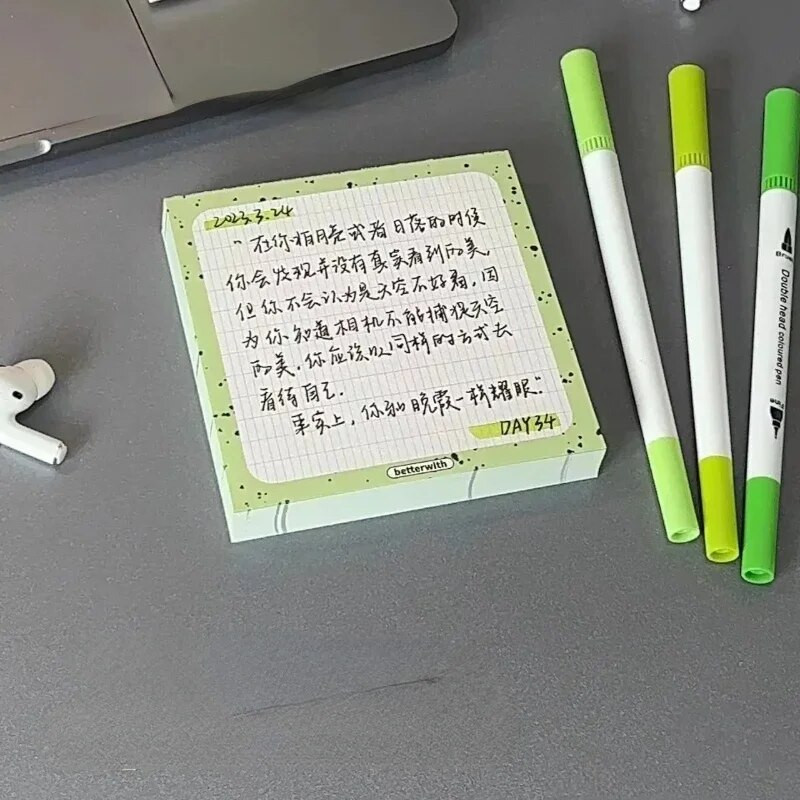 2023.3.24
"在你拍月亮或者日落的时候
你会发现并没有真实看到的美,
但你不会认为是天空不好看,因
为你知道相机不能捕捉天空
的美,你应该以同样的方式去
看待自己.
事实上,你和晚霞一样耀眼."
DAY34
betterwith
Double head coloured pen